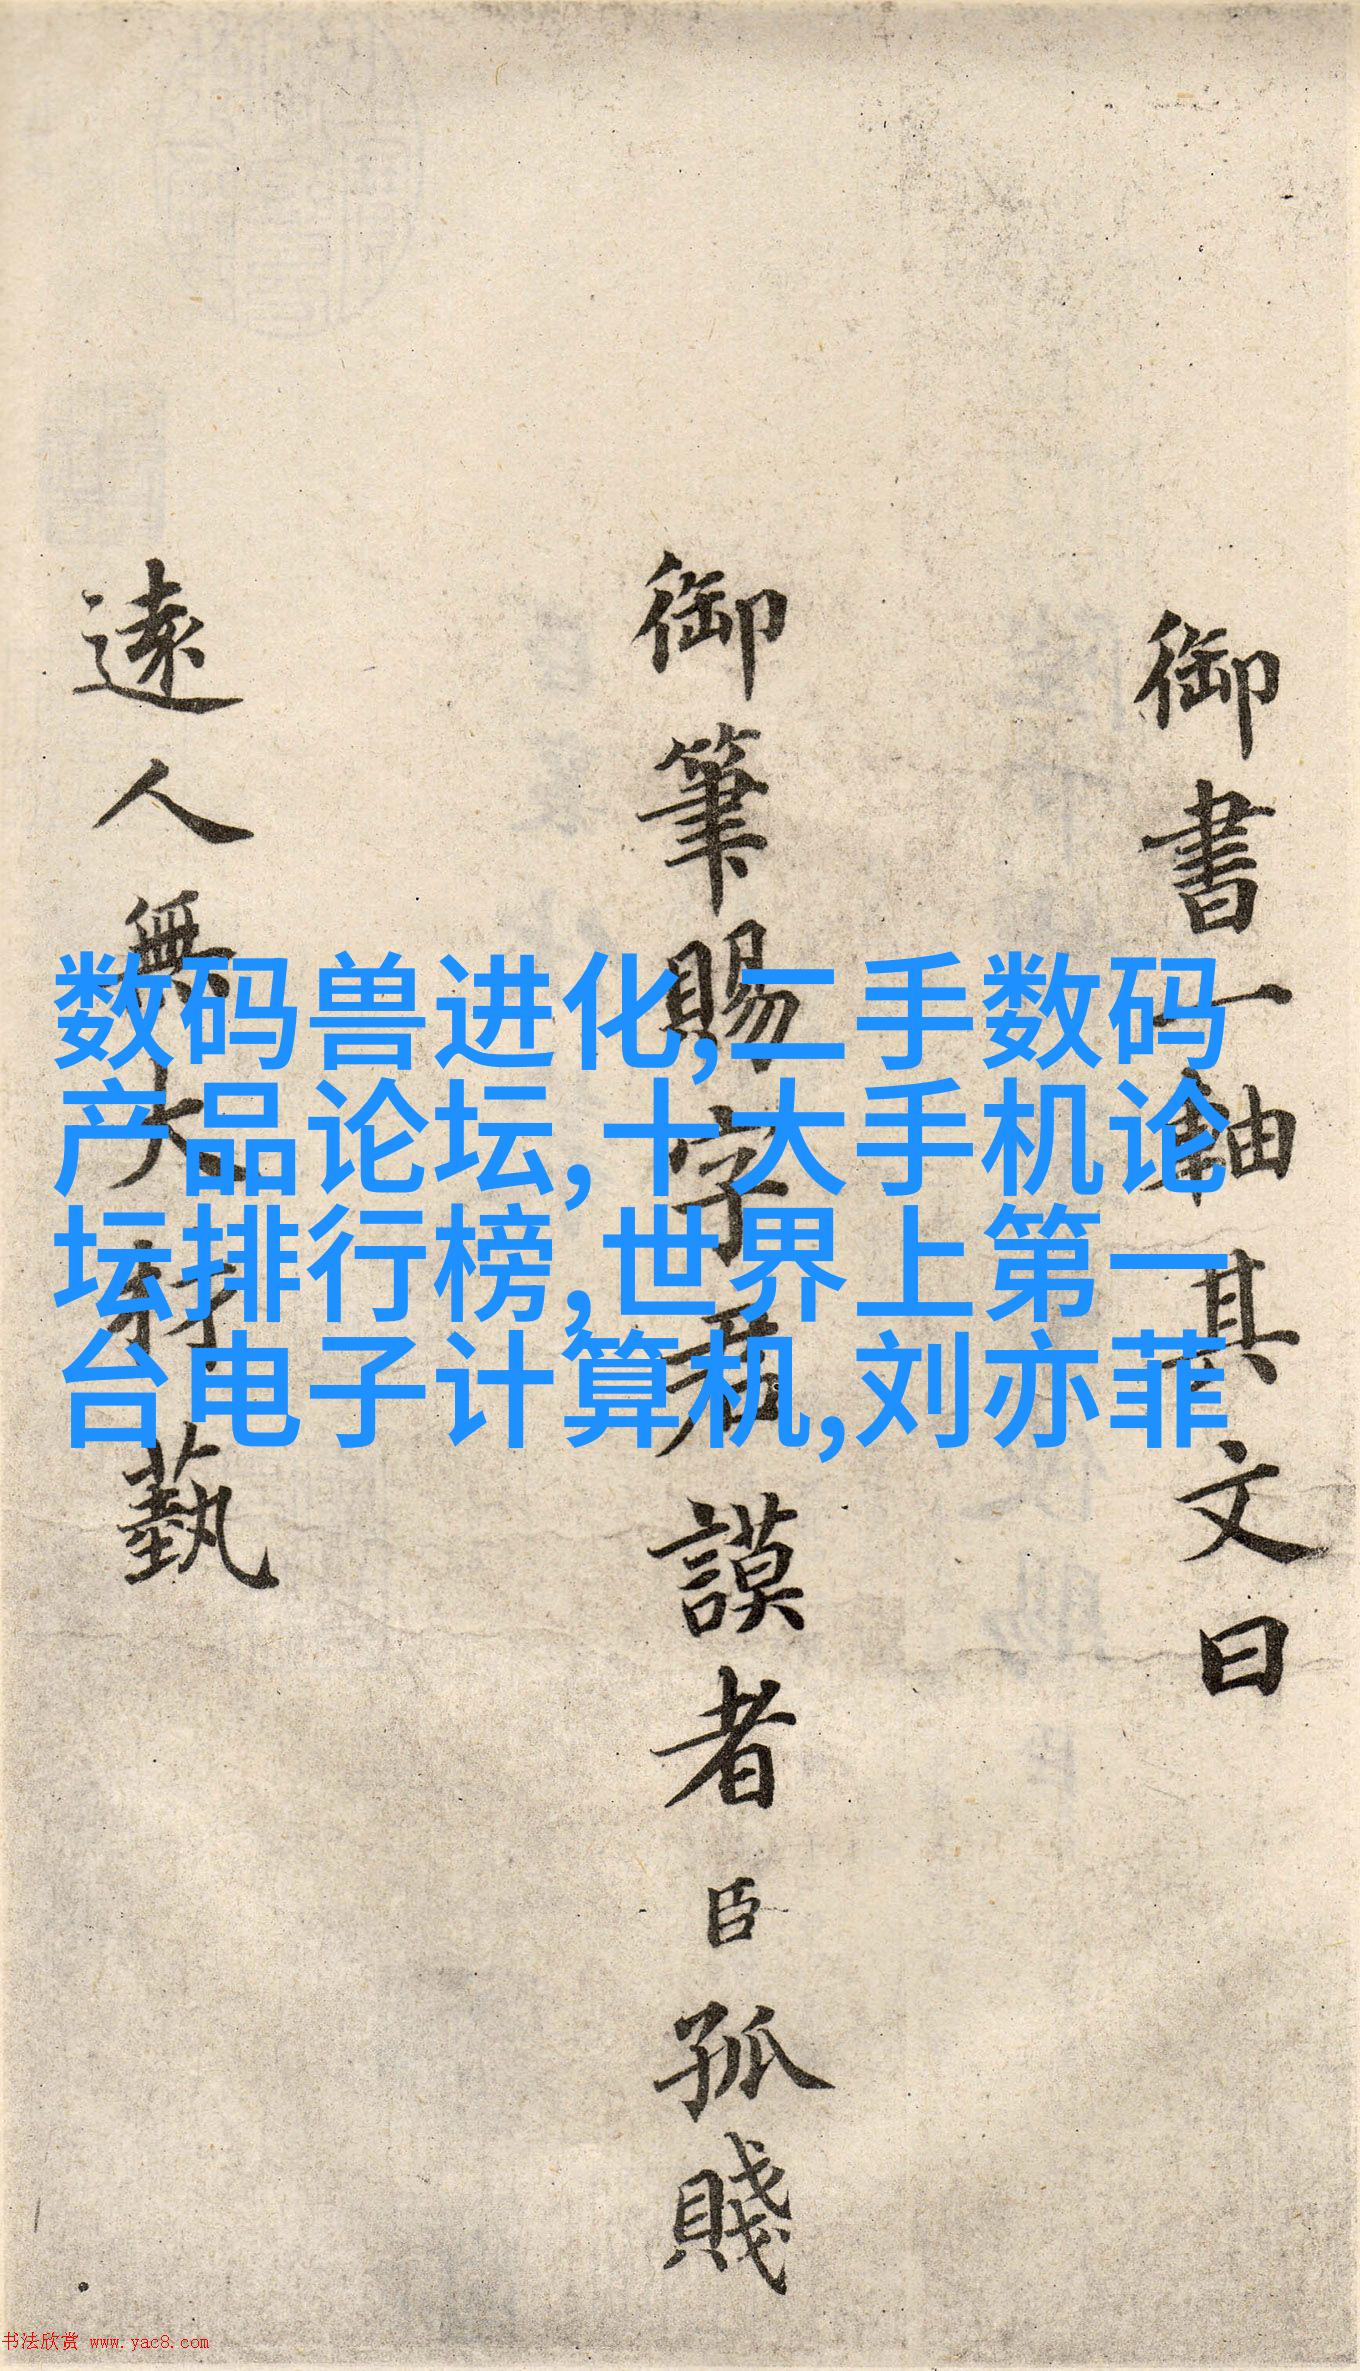 御書一軸其文曰
御筆賜字君謨者臣孤賤
遠人無大材藝
数码兽进化,二手数码
产品论坛,十大手机论
坛排行榜,世界上第一
台电子计算机,刘亦菲
书法欣赏 www.yac8.com